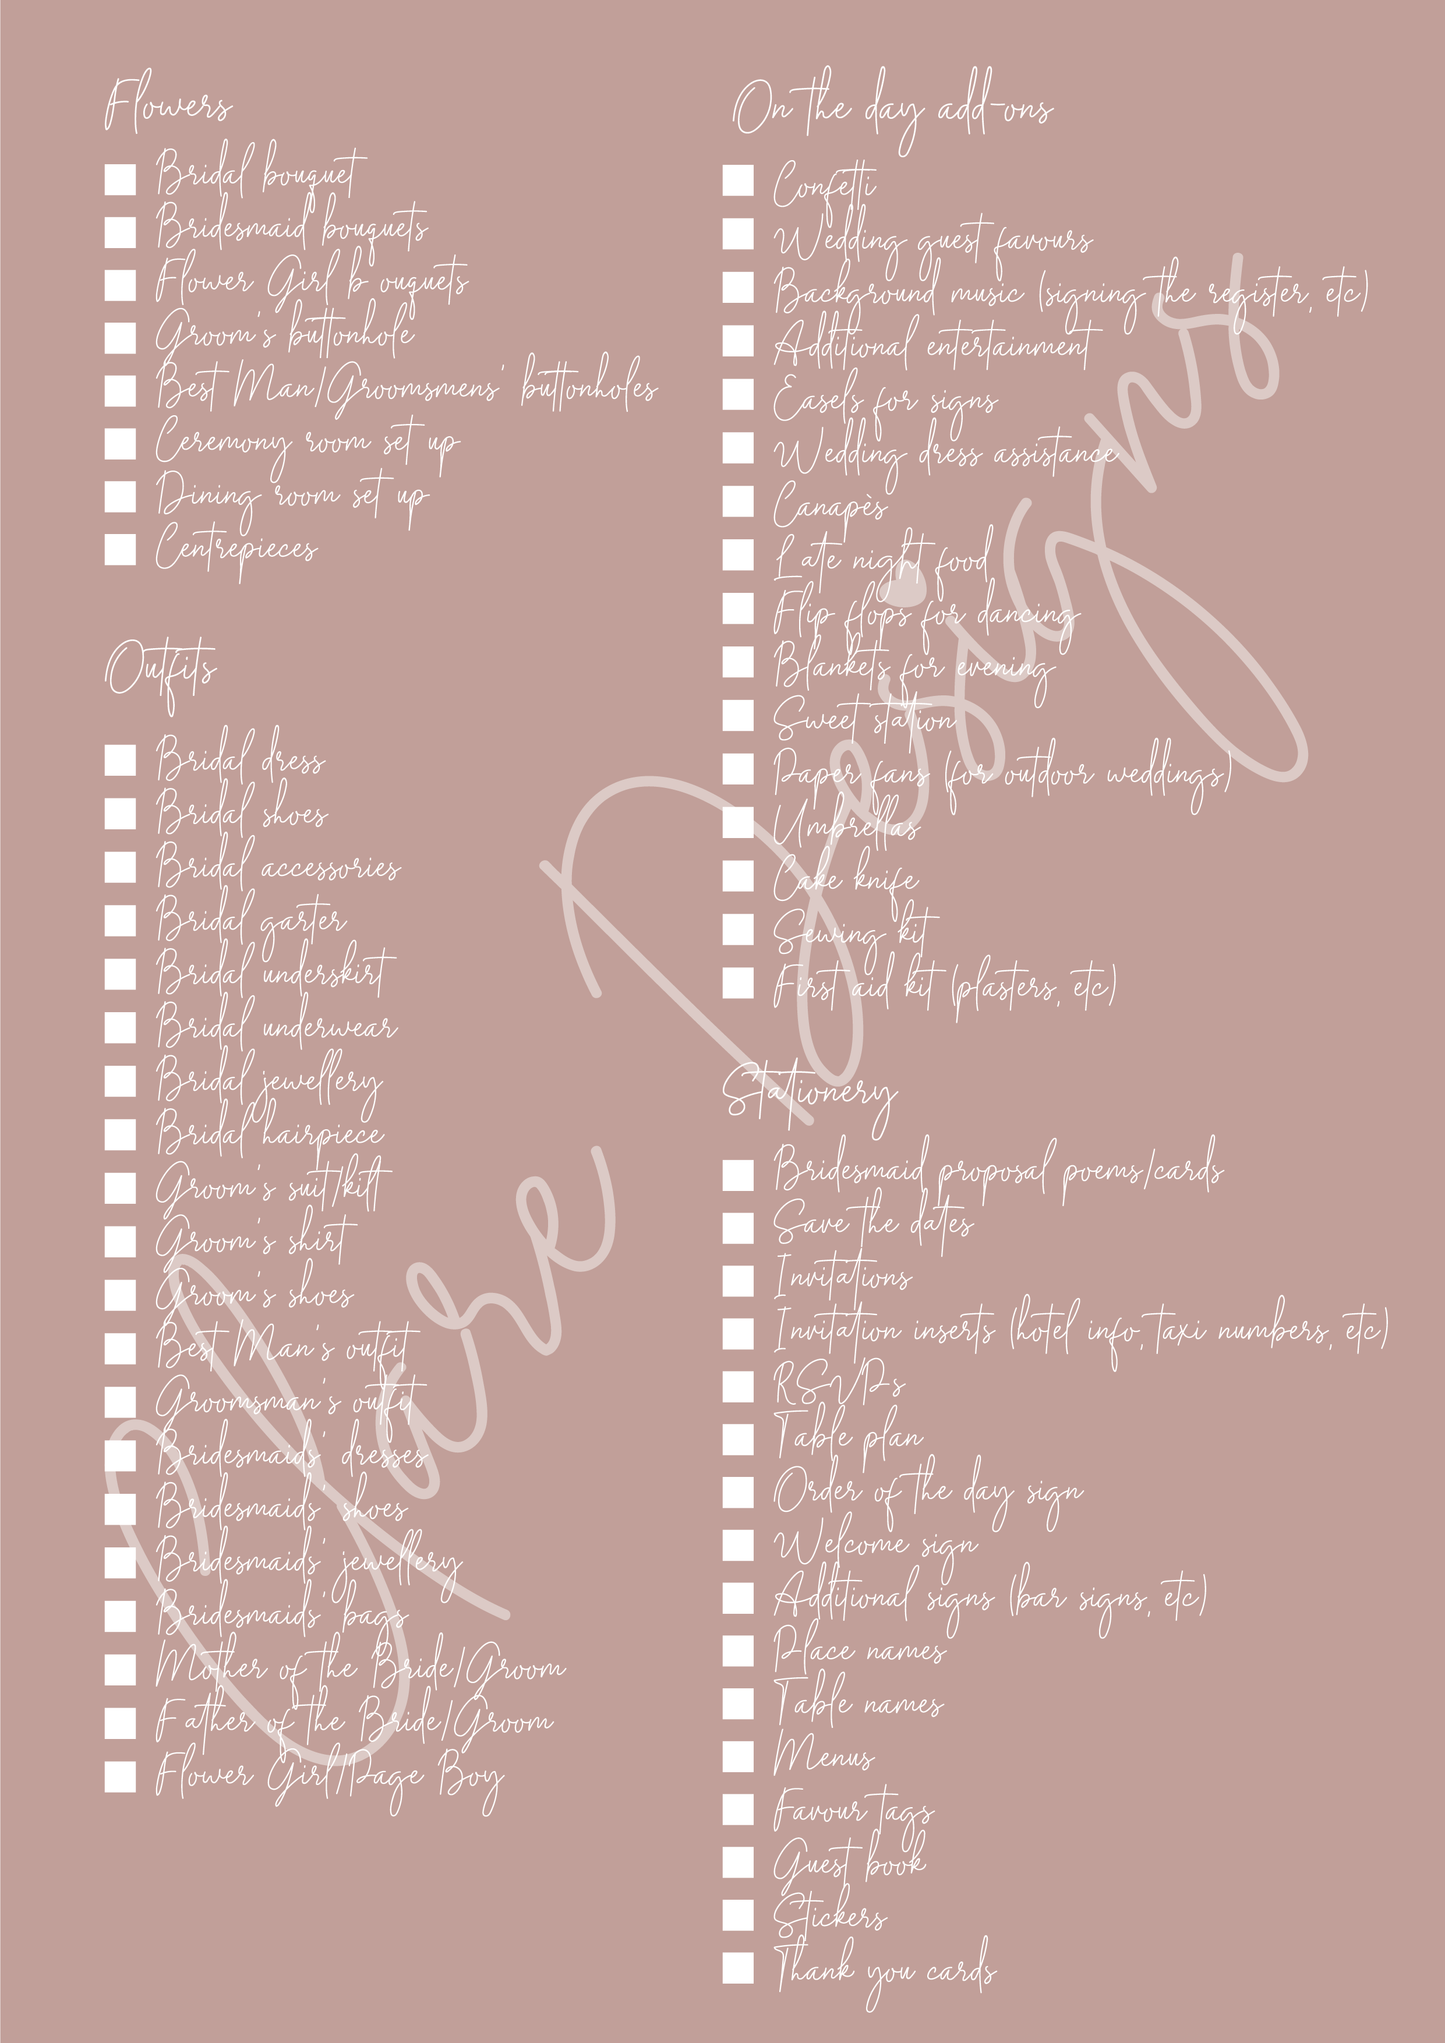 Flowers
Bridal bouquet
Bridesmaid bouquets
Flower Girl b ouquets
Groom's buttonhole
Best Man/Groomsmens' buttonholes
Ceremony room set up
Dining room set up
Centrepieces
Outfits
Bridal dress
Bridal shoes
Bridal accessories
Bridal garter
Bridal underskirt
Bridal underwear
Bridal jewellery
Bridal hairpiece
Groom's suit/kilt
Groom's shirt
Groom's shoes
Best Man's outfit
Groomsman's outfit
Bridesmaids' dresses
Bridesmaids' shoes
Bridesmaids' jewellery
Bridesmaids' bags
Mother of the Bride/Groom
Father of the Bride/Groom
Flower Girl/Page Boy
On the day add-ons
Confetti
Wedding guest favours
Background music (signing the register, etc)
Additional entertainment
Easels for signs
Wedding dress assistance
Canapès
Late night food
Flip flops for dancing
Blankets for evening
Sweet station
Paper fans (for outdoor weddings)
Umbrellas
Cake knife
Sewing kit
First aid kit (plasters, etc)
Stationery
Bridesmaid proposal poems/cards
Save the dates
Invitations
Invitation inserts (hotel info, taxi numbers, etc)
RSVPs
Table plan
Order of the day sign
Welcome sign
Additional signs (bar signs, etc)
Place names
Table names
Menus
Favour tags
Guest book
Stickers
Thank you cards
Designs